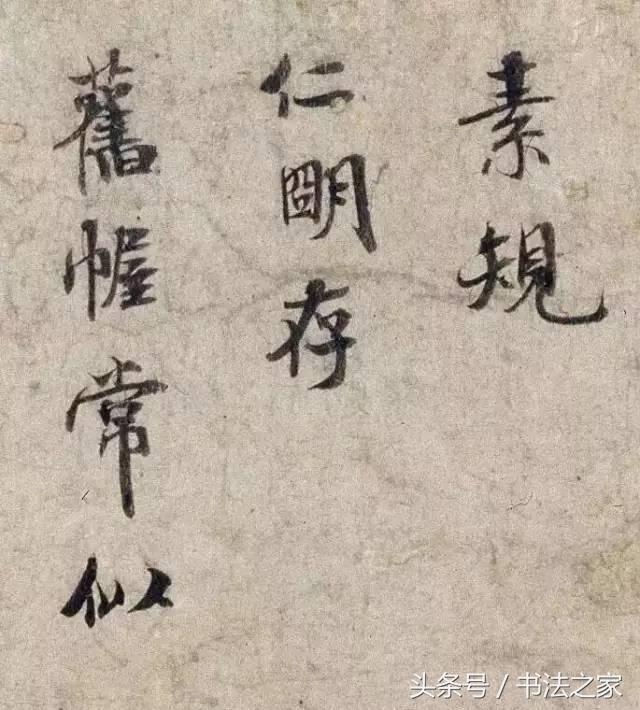 素䂓
仁朙存
舊幄常似
头条号／书法之家